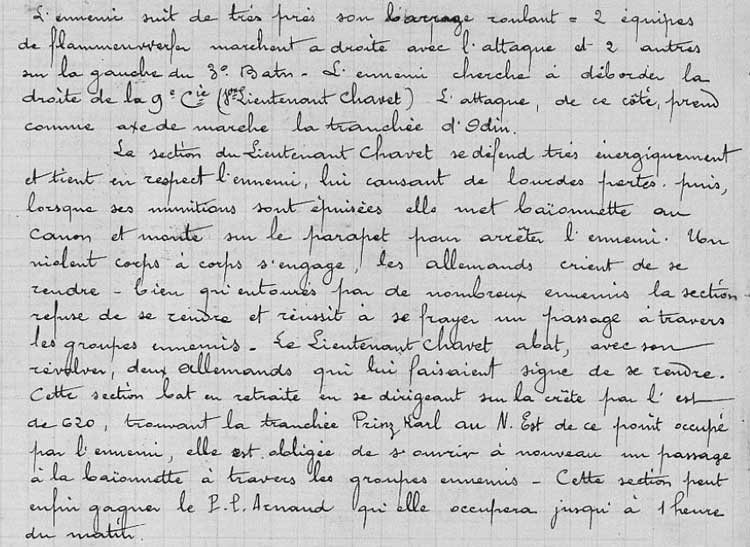 L'ennemi suit de très près son barrage roulant = 2 équipes
de flammenwerfer marchent a droite avec l'attaque et 2 autres
sur la gauche du 3e Batn - L'ennemi cherche à déborder la
droite de la 9e Cie (Lieutenant Chavet) L'attaque, de ce côté, prend
comme axe de marche la tranchée d'Odin.
La section du Lieutenant Chavet se défend très énergiquement
et tient en respect l'ennemi, lui causant de lourdes pertes. puis,
lorsque ses munitions sont épuisées elle met baïonnette au
canon et monte sur le parapet pour arrêter l'ennemi. Un
violent corps à corps s'engage, les allemands crient de se
rendre - bien qu'entourés par de nombreux ennemis la section
refuse de se rendre et réussit à se frayer un passage à travers
les groupes ennemis - Le Lieutenant Chavet abat, avec son
révolver, deux Allemands qui lui faisaient signe de se rendre.
Cette section bat en retraite en se dirigeant sur la crête par l'est
de 620, trouvant la tranchée Prinz Karl au N. Est de ce point occupé
par l'ennemi, elle est obligée de s'ouvrir à nouveau un passage
à la baïonnette à travers les groupes ennemis - Cette section peut
enfin gagner le P.P. Arnaud qu'elle occupera jusqu'à 1 heure
du matin.